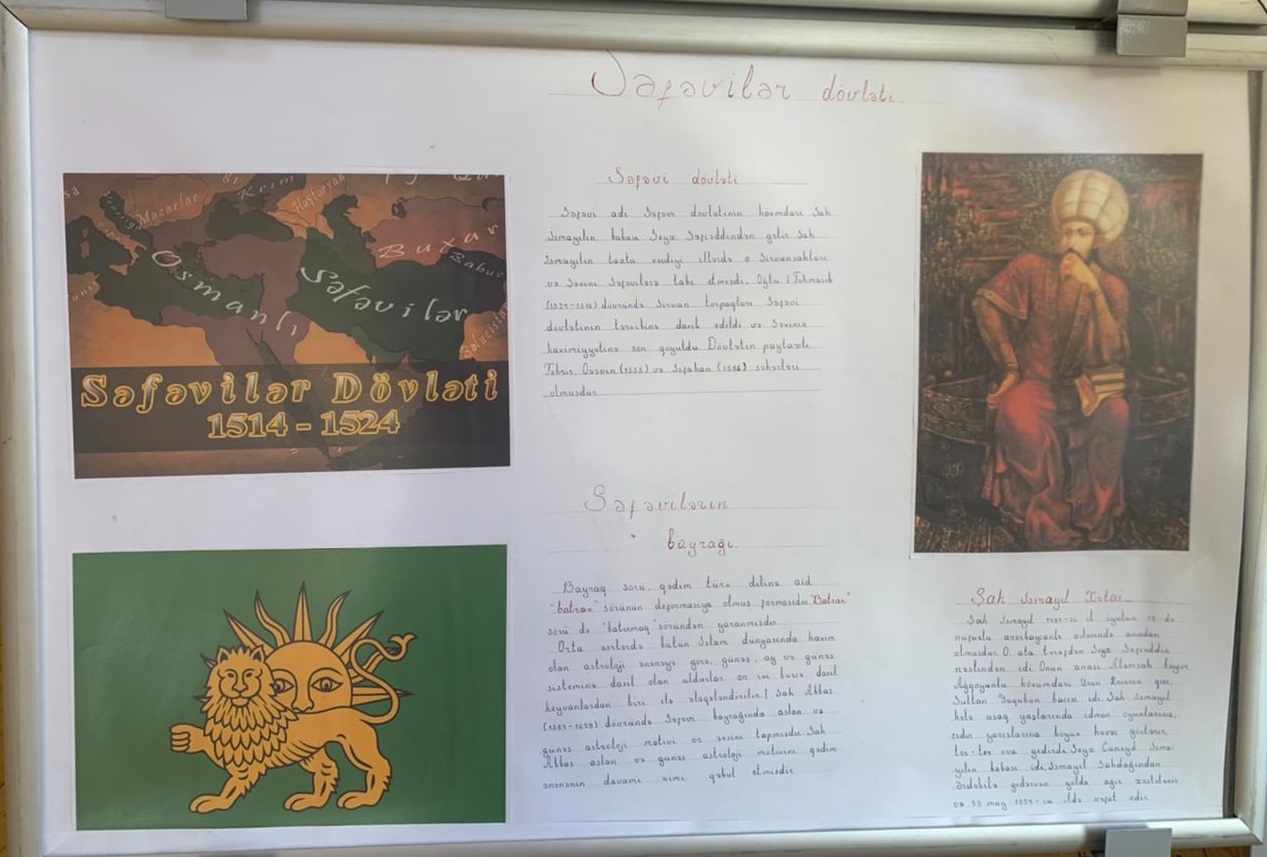 Səfəvilər dövləti
Krım
Macarlar
Osmanlı
Səfəvilər
Buxar
Babur
Səfəvilər Dövləti
1514 - 1524
Səfəvi dövləti
Səfəvi adı Səfəvi dövlətinin hökmdarı Şah
İsmayılın babası Şeyx Səfiəddindən gəlir Şah
İsmayılın taxta illərdə o Şirvanşahları
və Şəkini Səfəvilərə tabe etmişdi. Oğlu I Təhmasib
dövründə Şirvan torpaqları Səfəvi
dövlətinin tərkibinə daxil edildi və Şəkinin
hakimiyyətinə son qoyuldu Dövlətin paytaxtı
Təbriz, Qəzvin (1555) və İsfahan şəhərləri
olmuşdur
Səfəvilərin
bayrağı.
Bayraq sözü, qədim türk dilinə aid
"batrak" sözünün deformasiya olmuş formasıdır. "Batrak"
sözü də "batırmaq" sözündən yaranmışdır
Orta əsrlərdə bütün İslam dünyasında hakim
olan astroloji ənənəyə görə, günəş, ay və günəş
sisteminə daxil olan ulduzlar on iki bürcə daxil
heyvanlardan biri ilə əlaqələndirilir I Şah Abbas
dövründə Səfəvi bayrağında aslan və
günəş astroloji motivi öz əksini tapmışdır Şah
Abbas aslan və günəş astroloji motivini qədim
ənənənin davamı kimi qəbul etmişdir
Şah İsmayıl Xətai
Şah İsmayıl ci il iyulun də
nüfuzlu azərbaycanlı ailəsində anadan
olmuşdur. O, ata tərəfdən Şeyx Səfiəddin
nəslindən idi. Onun anası Aləmşah bəyim
Ağqoyunlu hökmdarı Uzun Həsənin qızı,
Sultan Yaqubun bacısı idi. Şah İsmayıl
hələ uşaq yaşlarında idman oyunlarına,
cıdır yarışlarına böyük həvəs göstərir
tez-tez ova gedirdi. Şeyx Cüneyd İsma-
yılın babası idi. İsmayıl Şahdağından
Ərdəbilə gedərkən yolda ağır xəstələnir
və 23 may ci ildə vəfat edir